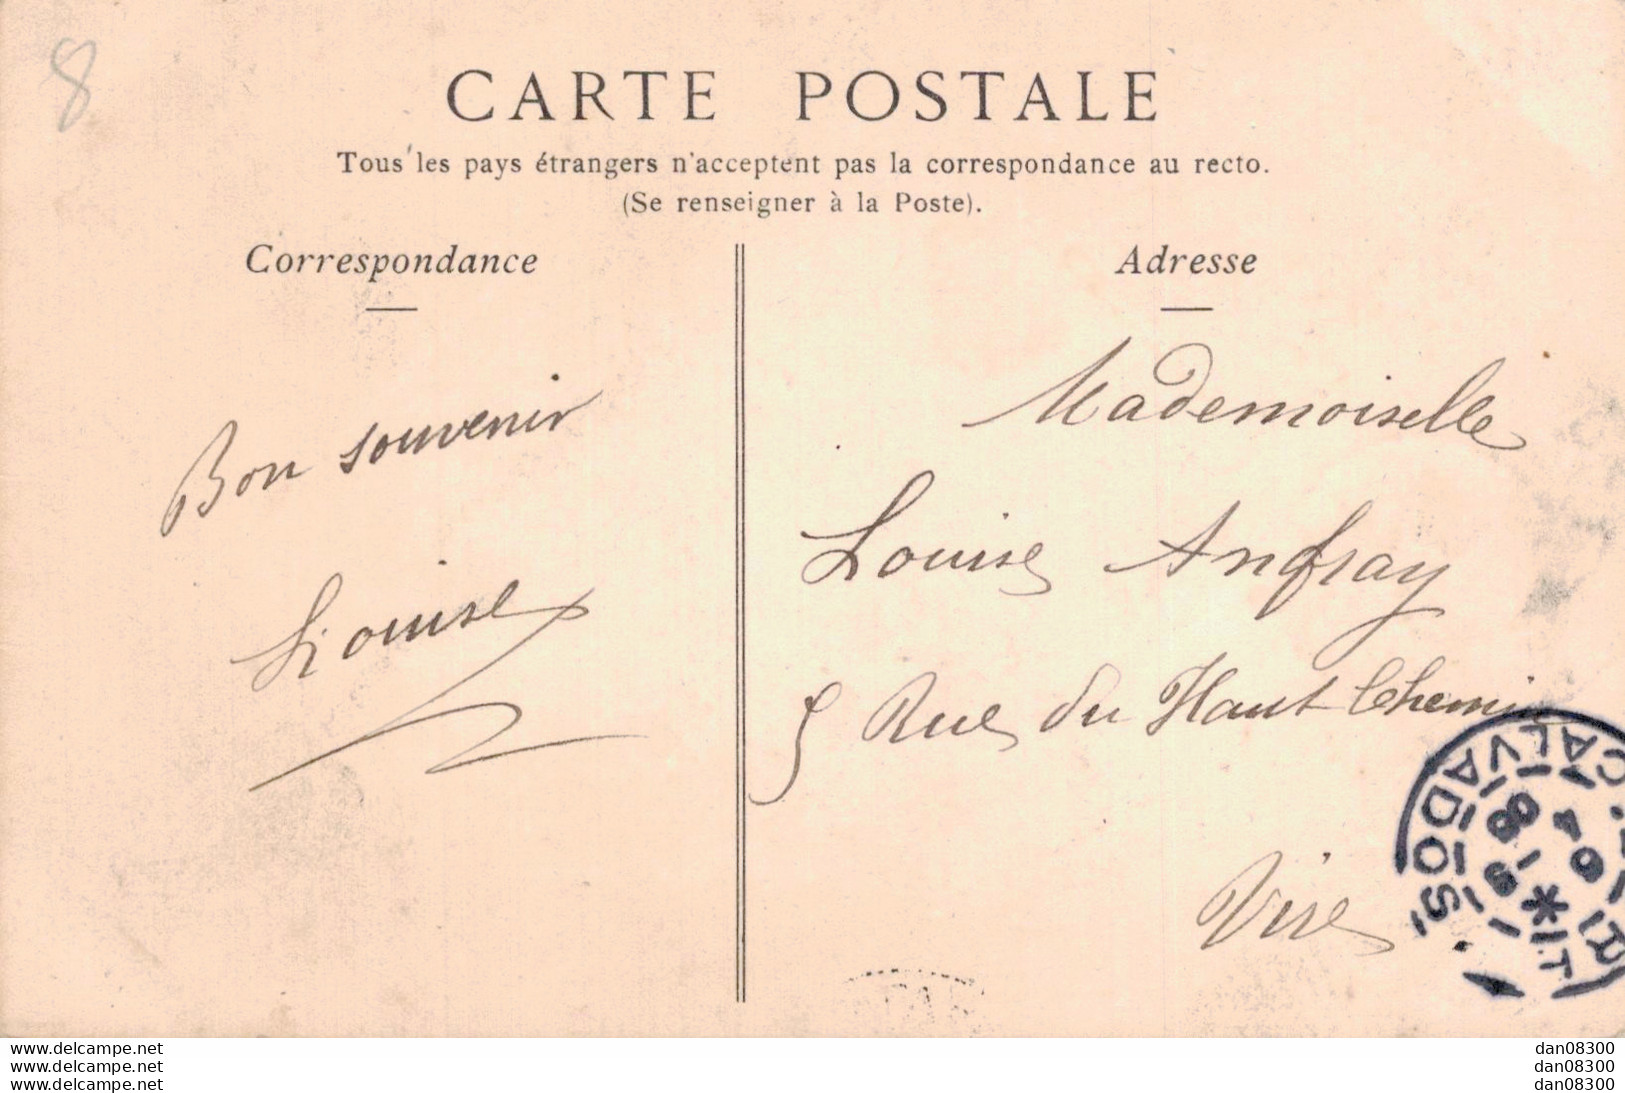 8
CARTE POSTALE
Tous les pays étrangers n'acceptent pas la correspondance au recto.
(Se renseigner à la Poste).
Correspondance
Bon souvenir
Louise
Adresse
Mademoiselle
Louise Anfray
5 Rue du Haut Chemin
Vire
CALVADOS
www.delcampe.net
www.delcampe.net
www.delcampe.net
dan08300
dan08300
dan08300